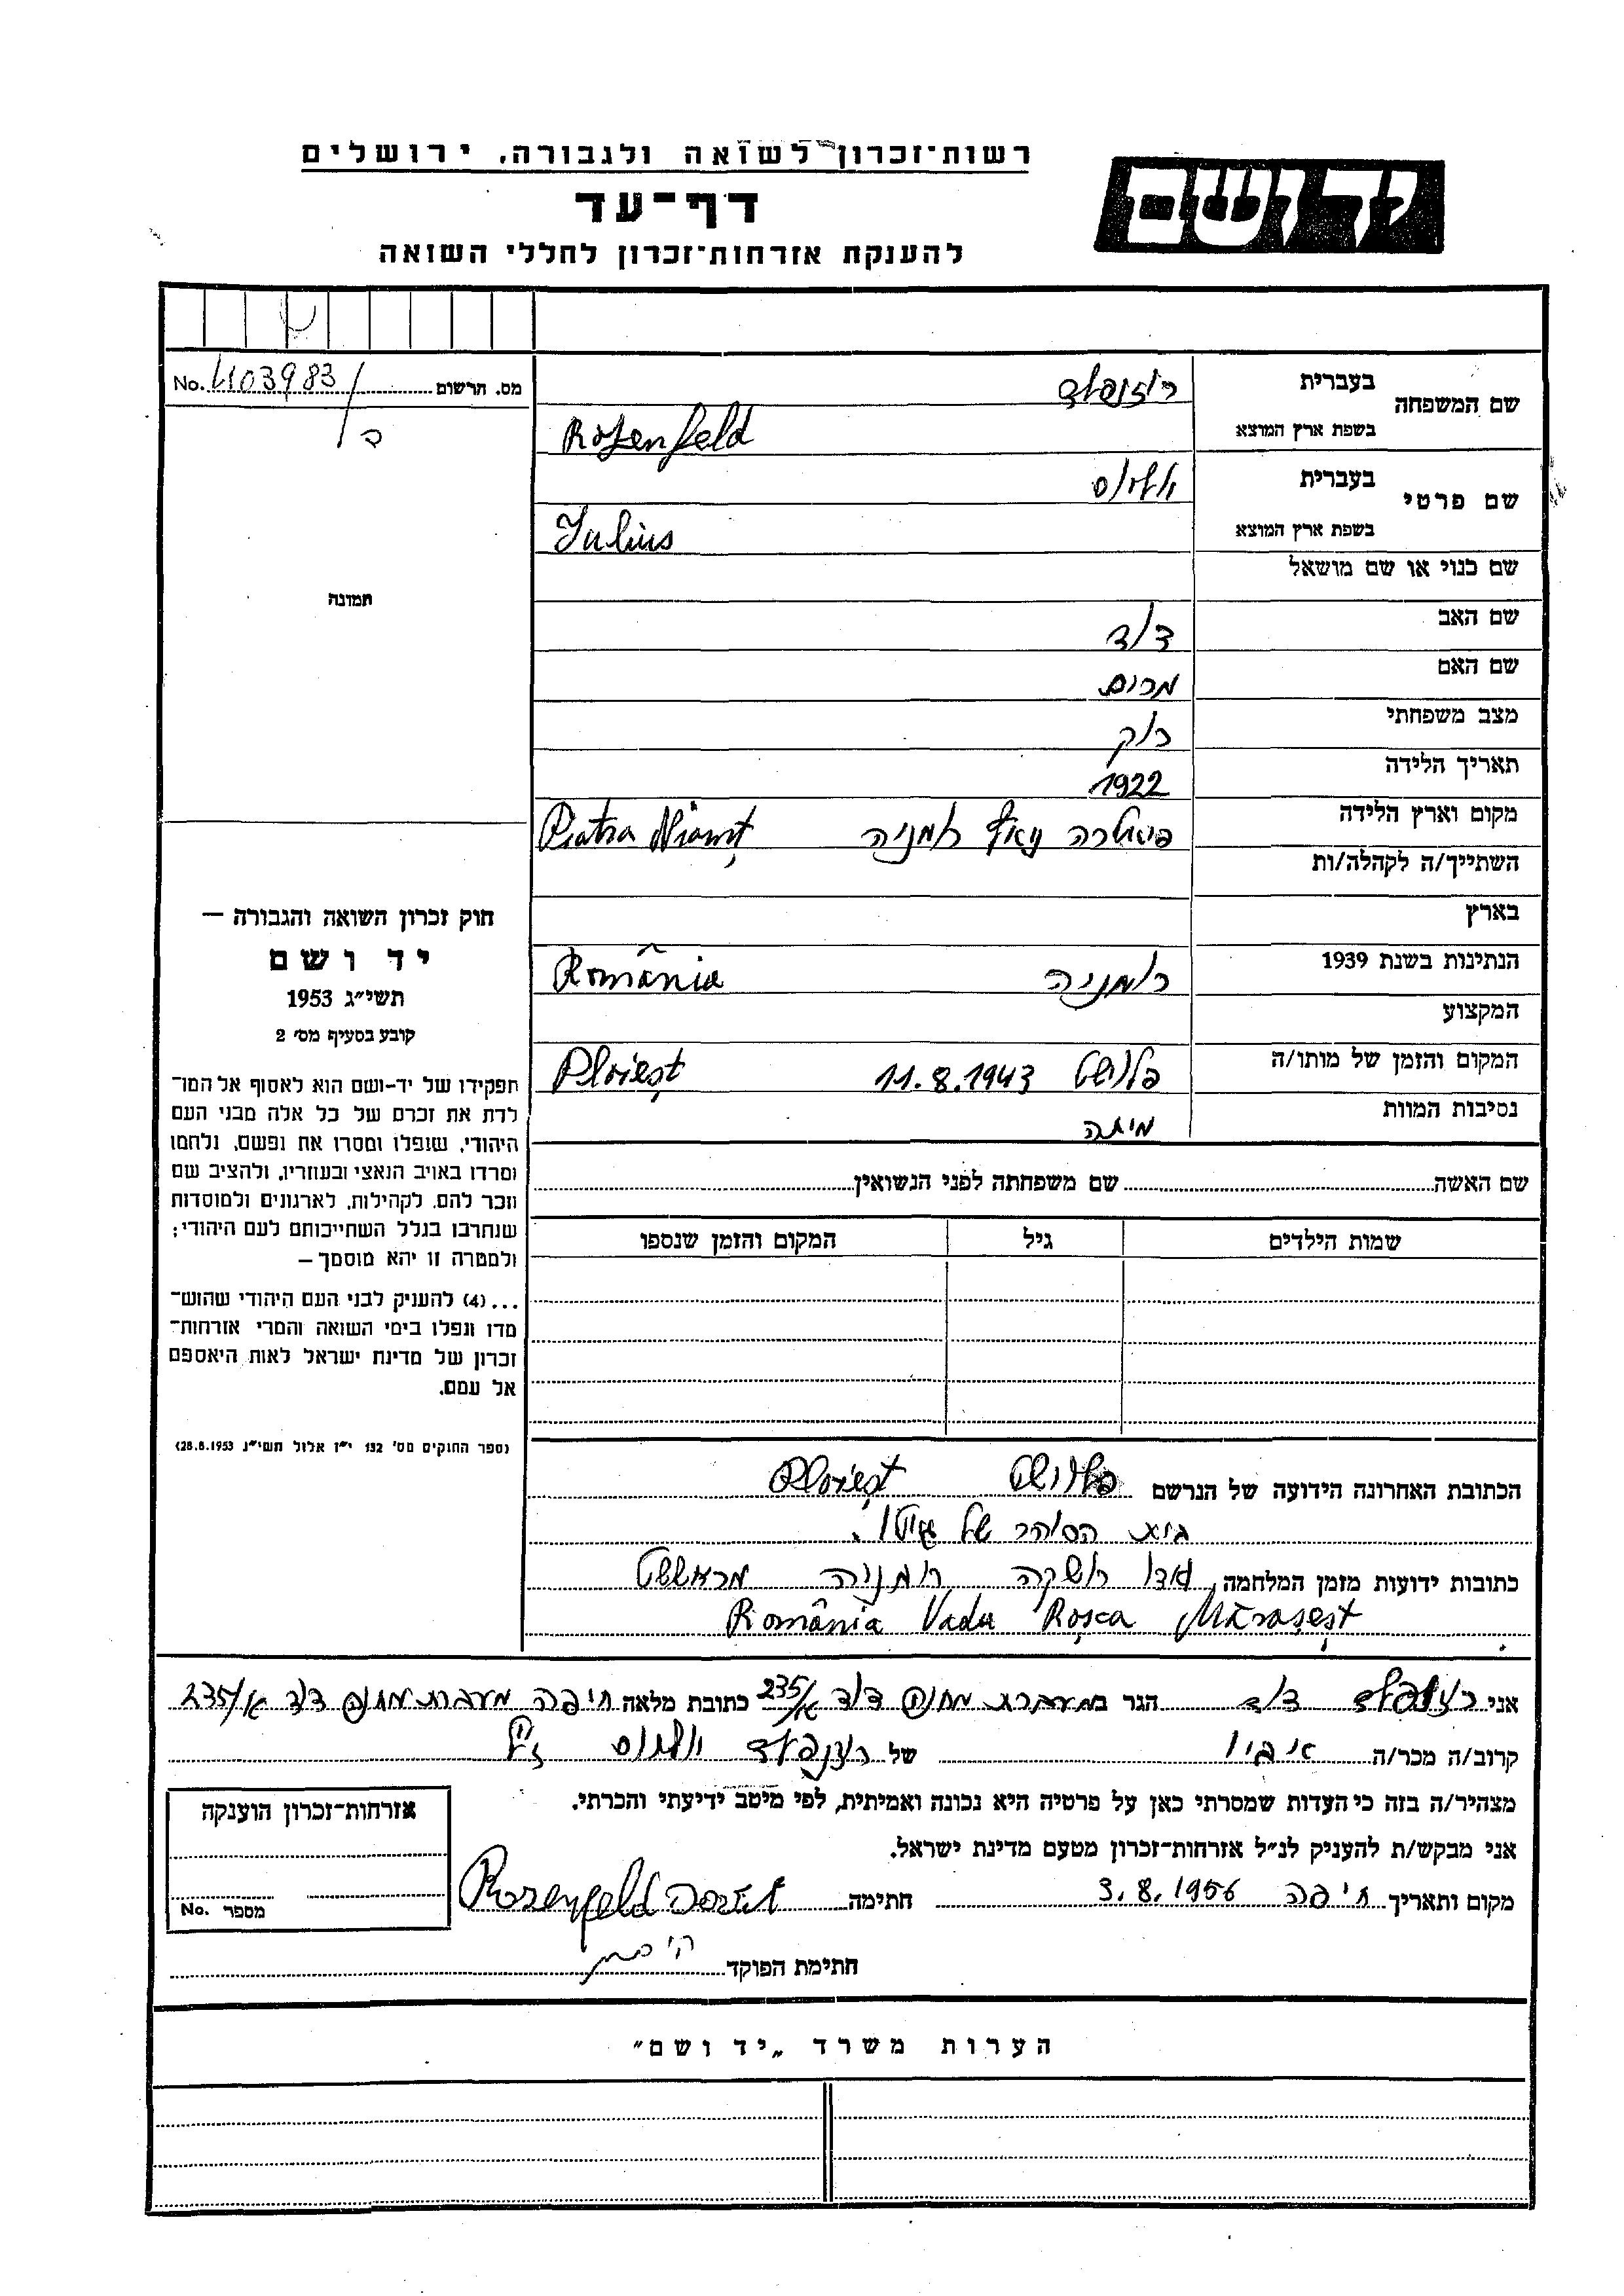 רשות־זכרון לשואה ולגבורה, ירושלים
יד ושם
דף־עד
להענקת אזרחות־זכרון לחללי השואה
מס. תרשום No. 4103983
שם המשפחה בעברית רוזנפלד
בשפת ארץ המוצא Rosenfeld
שם פרטי בעברית יוליוס
בשפת ארץ המוצא Iulius
שם כנוי או שם מושאל
שם האב דוד
שם האם מרים
מצב משפחתי רוק
תאריך הלידה 1922
מקום וארץ הלידה רומניה Piatra Niamț
השתייך/ה לקהלה/ות
בארץ
הנתינות בשנת 1939 רומניה România
המקצוע
המקום והזמן של מותו/ה פלושט 11.8.1943 Ploiești
נסיבות המוות מיתה
שם האשה שם משפחתה לפני הנשואין
שמות הילדים גיל המקום והזמן שנספו
תמונה
חוק זכרון השואה והגבורה —
יד ושם
תשי״ג 1953
קובע בסעיף מס׳ 2
תפקידו של יד-ושם הוא לאסוף אל המו־
לדת את זכרם של כל אלה מבני העם
היהודי, שנפלו ומסרו את נפשם, נלחמו
ומרדו באויב הנאצי ובעוזריו, ולהציב שם
וזכר להם, לקהילות, לארגונים ולמוסדות
שנחרבו בגלל השתייכותם לעם היהודי;
ולמטרה זו יהא מוסמך —
...(4) להעניק לבני העם היהודי שהוש־
מדו ונפלו בימי השואה והמרי אזרחות־
זכרון של מדינת ישראל לאות היאספם
אל עמם.
(ספר החוקים מס׳ 132 י״ז אלול תשי״ג 28.8.1953)
הכתובת האחרונה הידועה של הנרשם פלויושט Ploiești
הסוהר של
כתובות ידועות מזמן המלחמה ואדו רושקה רומניה מראששט
România Vadu Roșca Mărășești
אני רוזנפלד דוד הגר ב מעברת מחנה דוד א/235 כתובת מלאה חיפה מעברת מחנה דוד א/235
קרוב/ה מכר/ה אביו של רוזנפלד יוליוס ז״ל
מצהיר/ה בזה כי העדות שמסרתי כאן על פרטיה היא נכונה ואמיתית, לפי מיטב ידיעתי והכרתי.
אני מבקש/ת להעניק לנ״ל אזרחות־זכרון מטעם מדינת ישראל.
מקום ותאריך חיפה 3.8.1956 חתימה Rosenfeld David
חתימת הפוקד
אזרחות־זכרון הוענקה
מספר No.
הערות משרד „יד ושם״